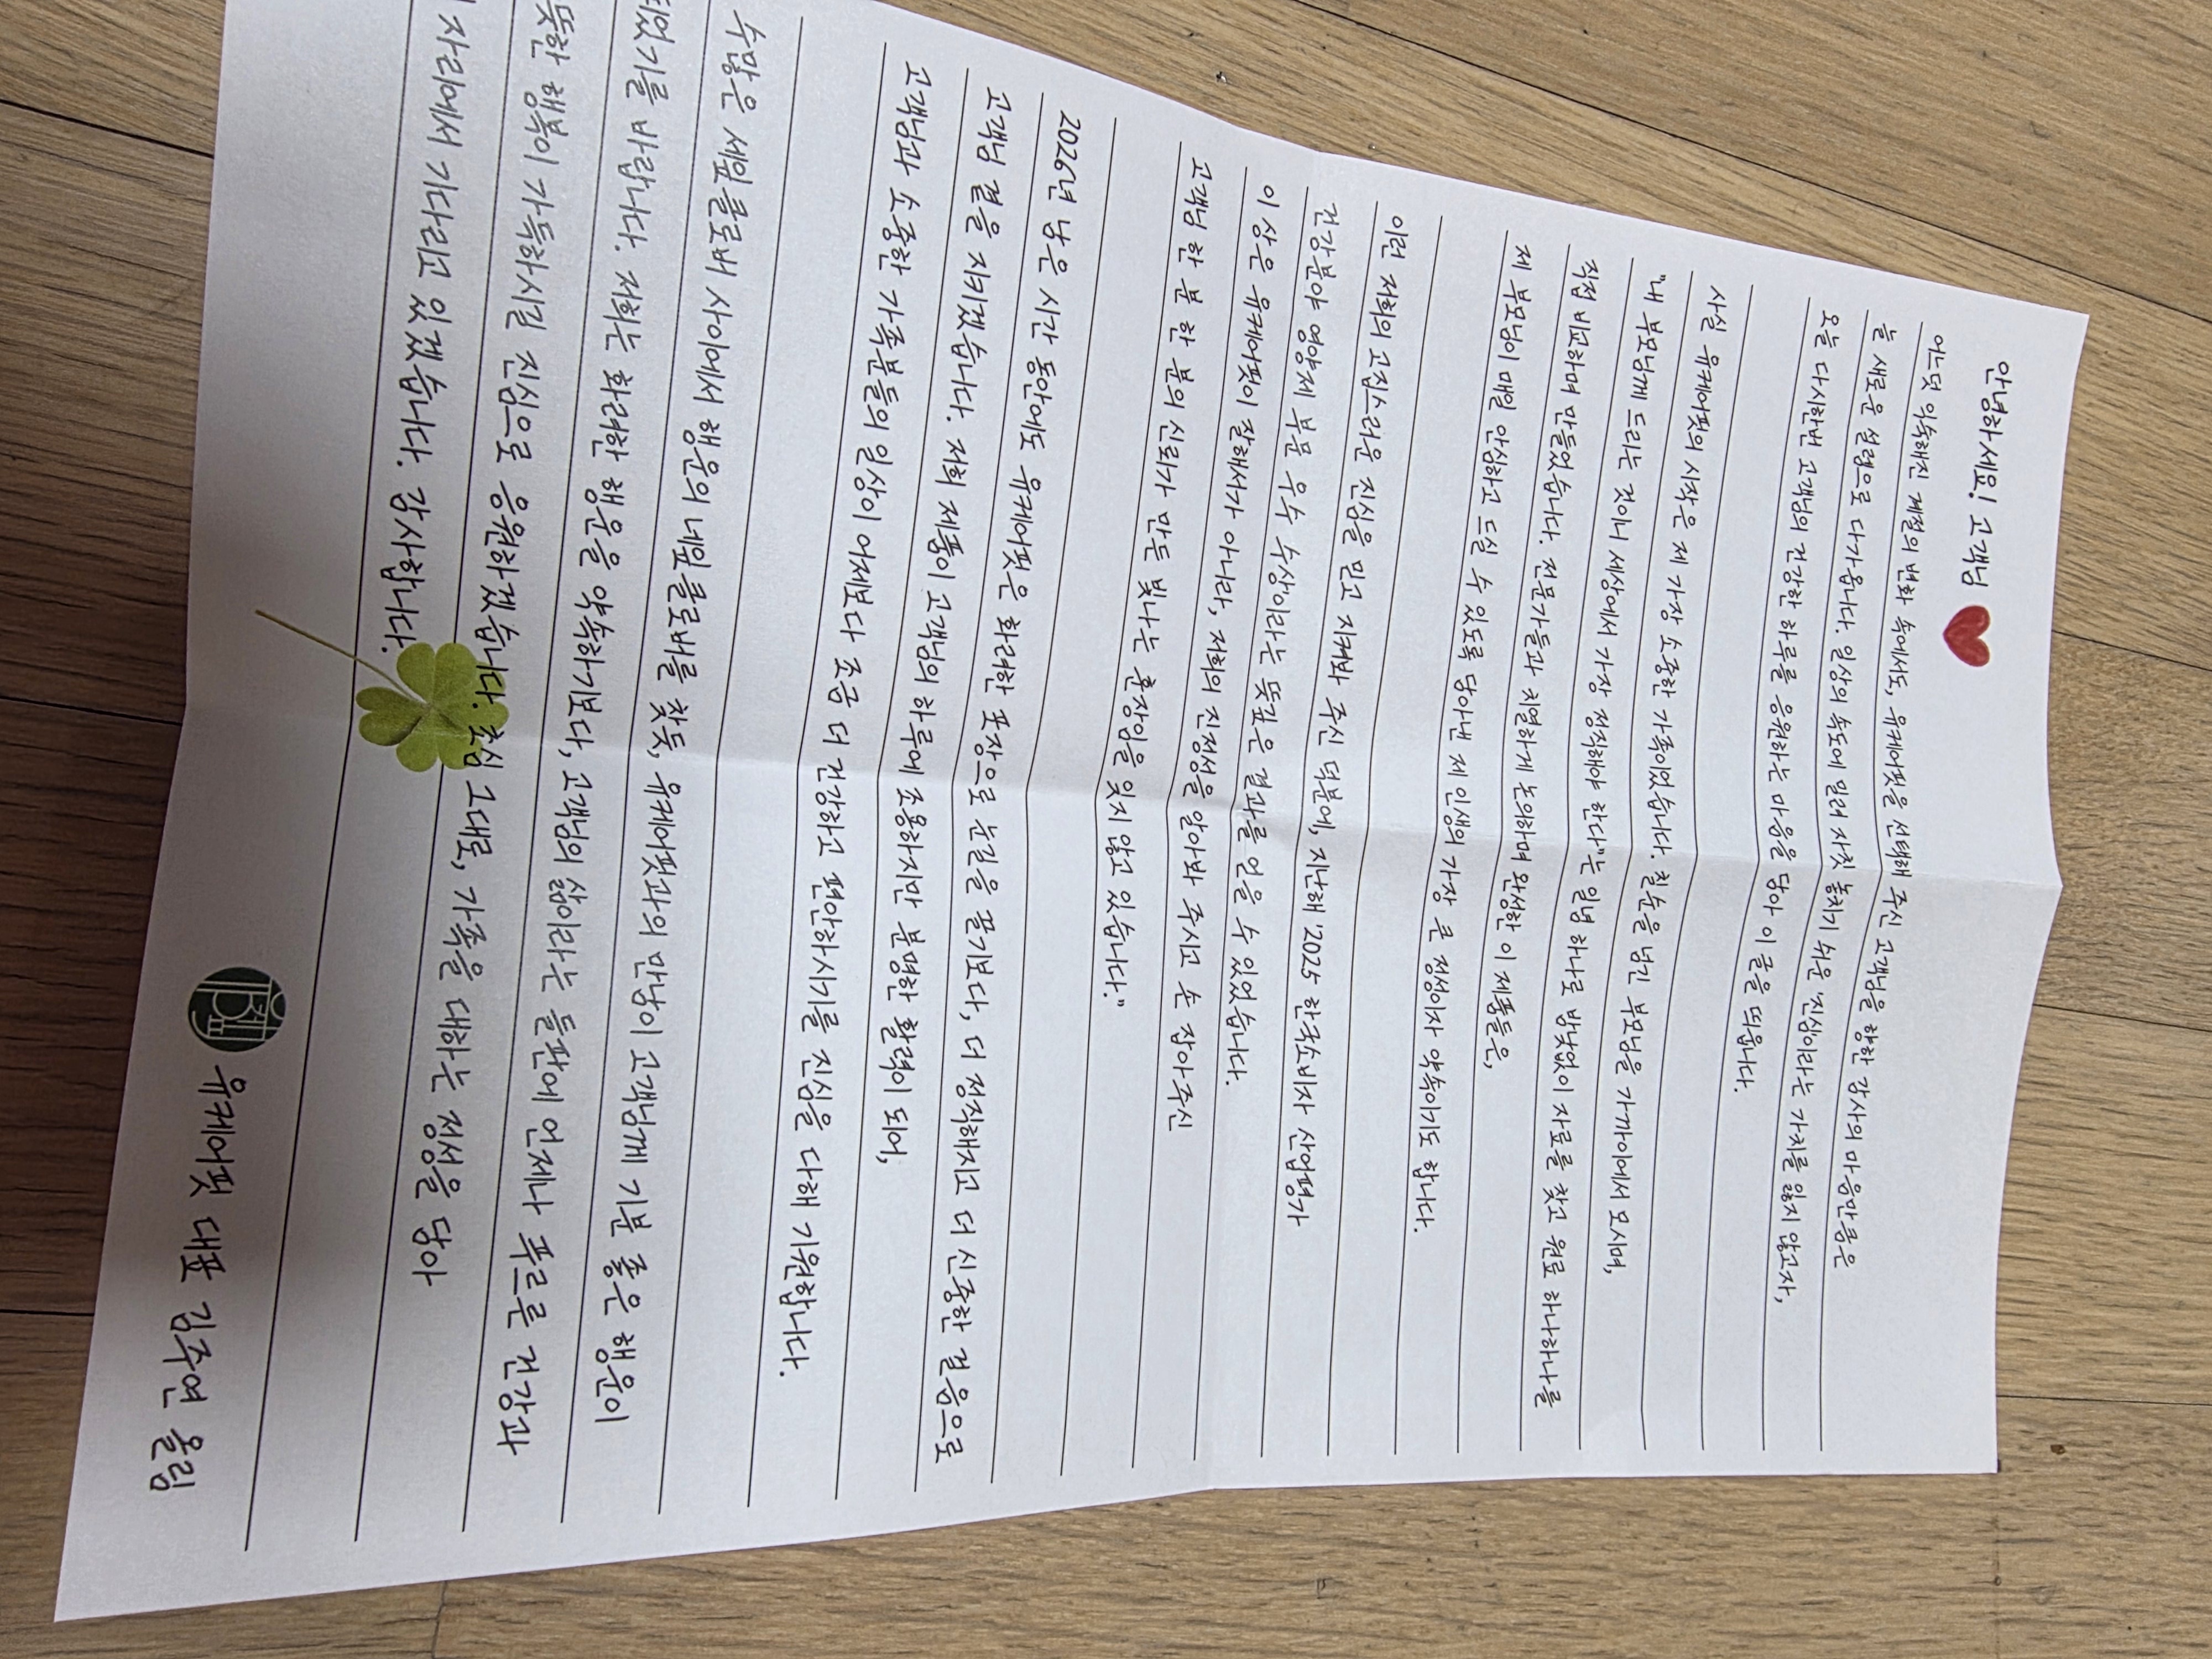 안녕하세요! 고객님
어느덧 익숙해진 계절의 변화 속에서도, 유케어핏을 선택해 주신 고객님을 향한 감사의 마음만큼은
늘 새로운 설렘으로 다가옵니다. 일상의 속도에 밀려 자칫 놓치기 쉬운 '진심'이라는 가치를 잃지 않고자,
오늘 다시한번 고객님의 건강한 하루를 응원하는 마음을 담아 이 글을 띄웁니다.
사실 유케어핏의 시작은 제 가장 소중한 가족이었습니다. 칠순을 넘긴 부모님을 가까이에서 모시며,
"내 부모님께 드리는 것이니 세상에서 가장 정직해야 한다"는 일념 하나로 밤낮없이 자료를 찾고 원료 하나하나를
직접 비교하며 만들었습니다. 전문가들과 치열하게 논의하며 완성한 이 제품들은,
제 부모님이 매일 안심하고 드실 수 있도록 담아낸 제 인생의 가장 큰 정성이자 약속이기도 합니다.
이런 저희의 고집스러운 진심을 믿고 지켜봐 주신 덕분에, 지난해 '2025 한국소비자 산업평가
건강분야 영양제 부문 우수 수상'이라는 뜻깊은 결과를 얻을 수 있었습니다.
이 상은 유케어핏이 잘해서가 아니라, 저희의 진정성을 알아봐 주시고 손 잡아주신
고객님 한 분 한 분의 신뢰가 만든 빛나는 훈장임을 잊지 않고 있습니다."
2026년 남은 시간 동안에도 유케어핏은 화려한 포장으로 눈길을 끌기보다, 더 정직해지고 더 신중한 걸음으로
고객님 곁을 지키겠습니다. 저희 제품이 고객님의 하루에 조용하지만 분명한 활력이 되어,
고객님과 소중한 가족분들의 일상이 어제보다 조금 더 건강하고 편안하시기를 진심을 다해 기원합니다.
수많은 세잎클로버 사이에서 행운의 네잎클로버를 찾듯, 유케어핏과의 만남이 고객님께 기분 좋은 행운이
되었기를 바랍니다. 저희는 화려한 행운을 약속하기보다, 고객님의 삶이라는 들판에 언제나 푸르른 건강과
뜻한 행복이 가득하시길 진심으로 응원하겠습니다. 초심 그대로, 가족을 대하는 정성을 담아
자리에서 기다리고 있겠습니다. 감사합니다.
유케어핏 대표 김주연 올림